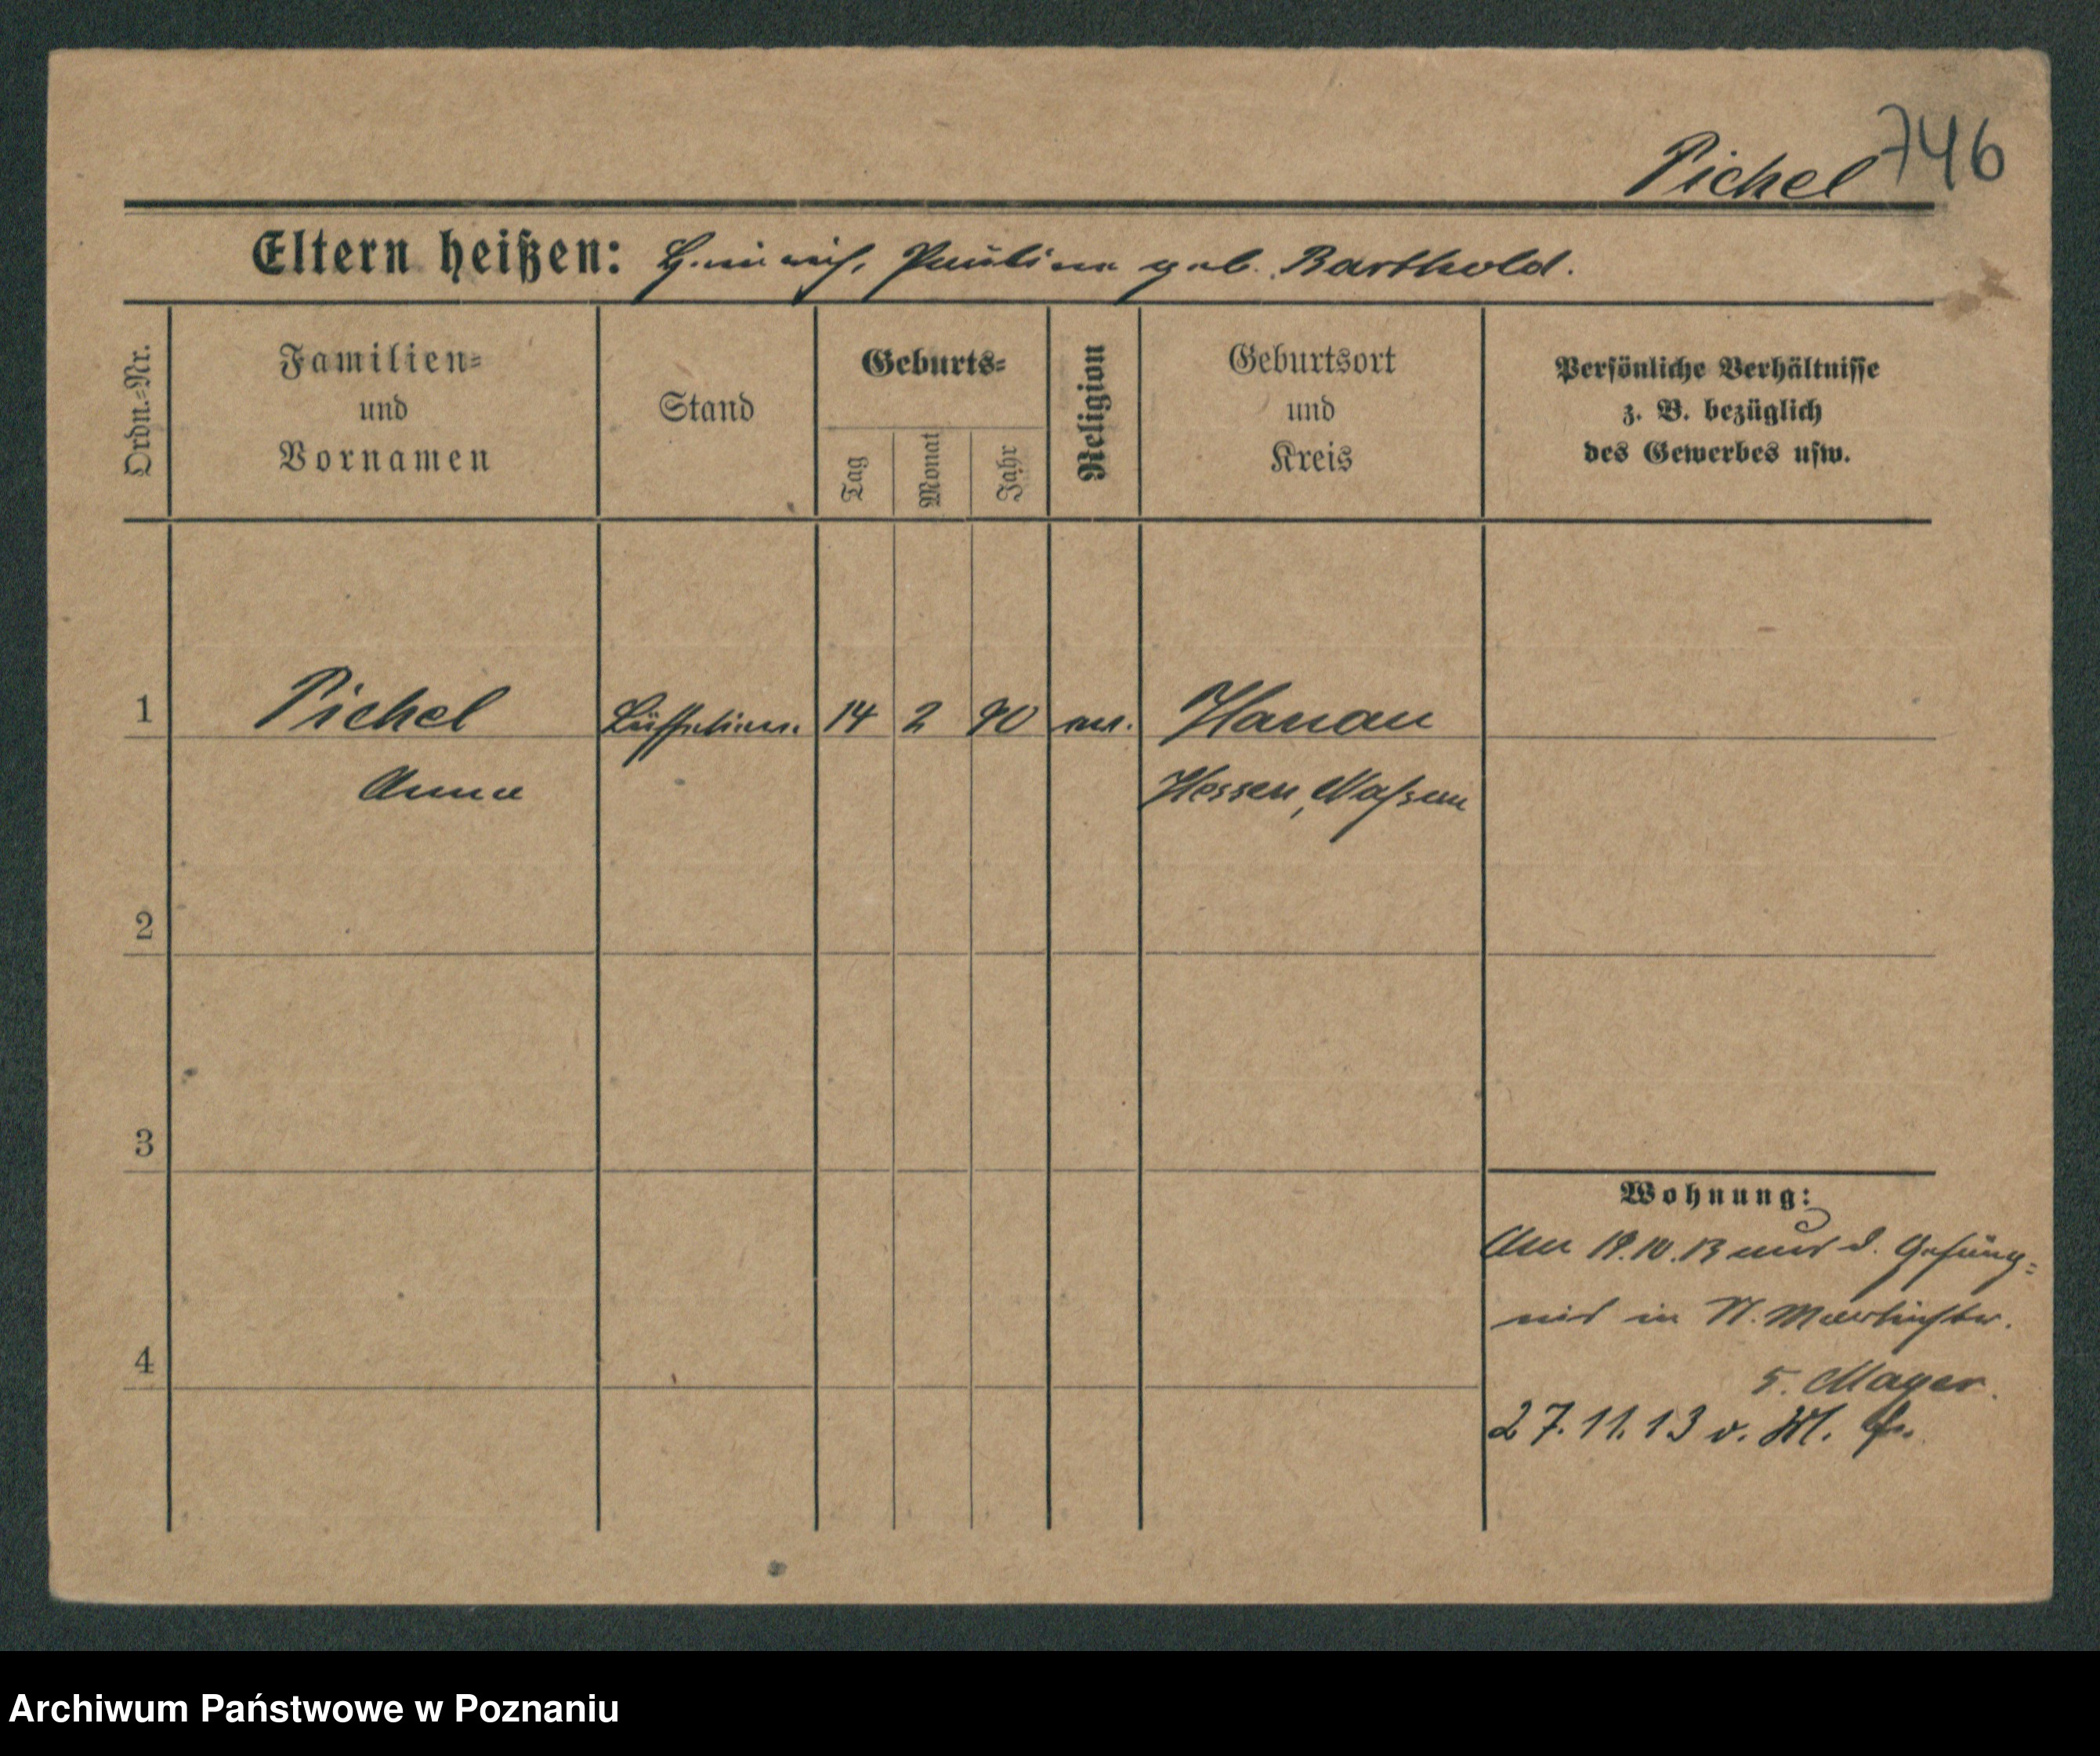 746
Pichel
Eltern heißen: Heinrich, Pauline geb. Barthold.
Ordn.=Nr.
Familien=
und
Vornamen
Stand
Geburts=
Tag
Monat
Jahr
Religion
Geburtsort
und
Kreis
Persönliche Verhältnisse
z. B. bezüglich
des Gewerbes usw.
1 Pichel Büffetiere. 14 2 90 ev. Hanau
Anna Hessen, Nassau
2
3
4
Wohnung:
Am 19.10.13 aus d. Gefäng=
nis in N.
5. Mager.
27.11.13 v.
Archiwum Państwowe w Poznaniu